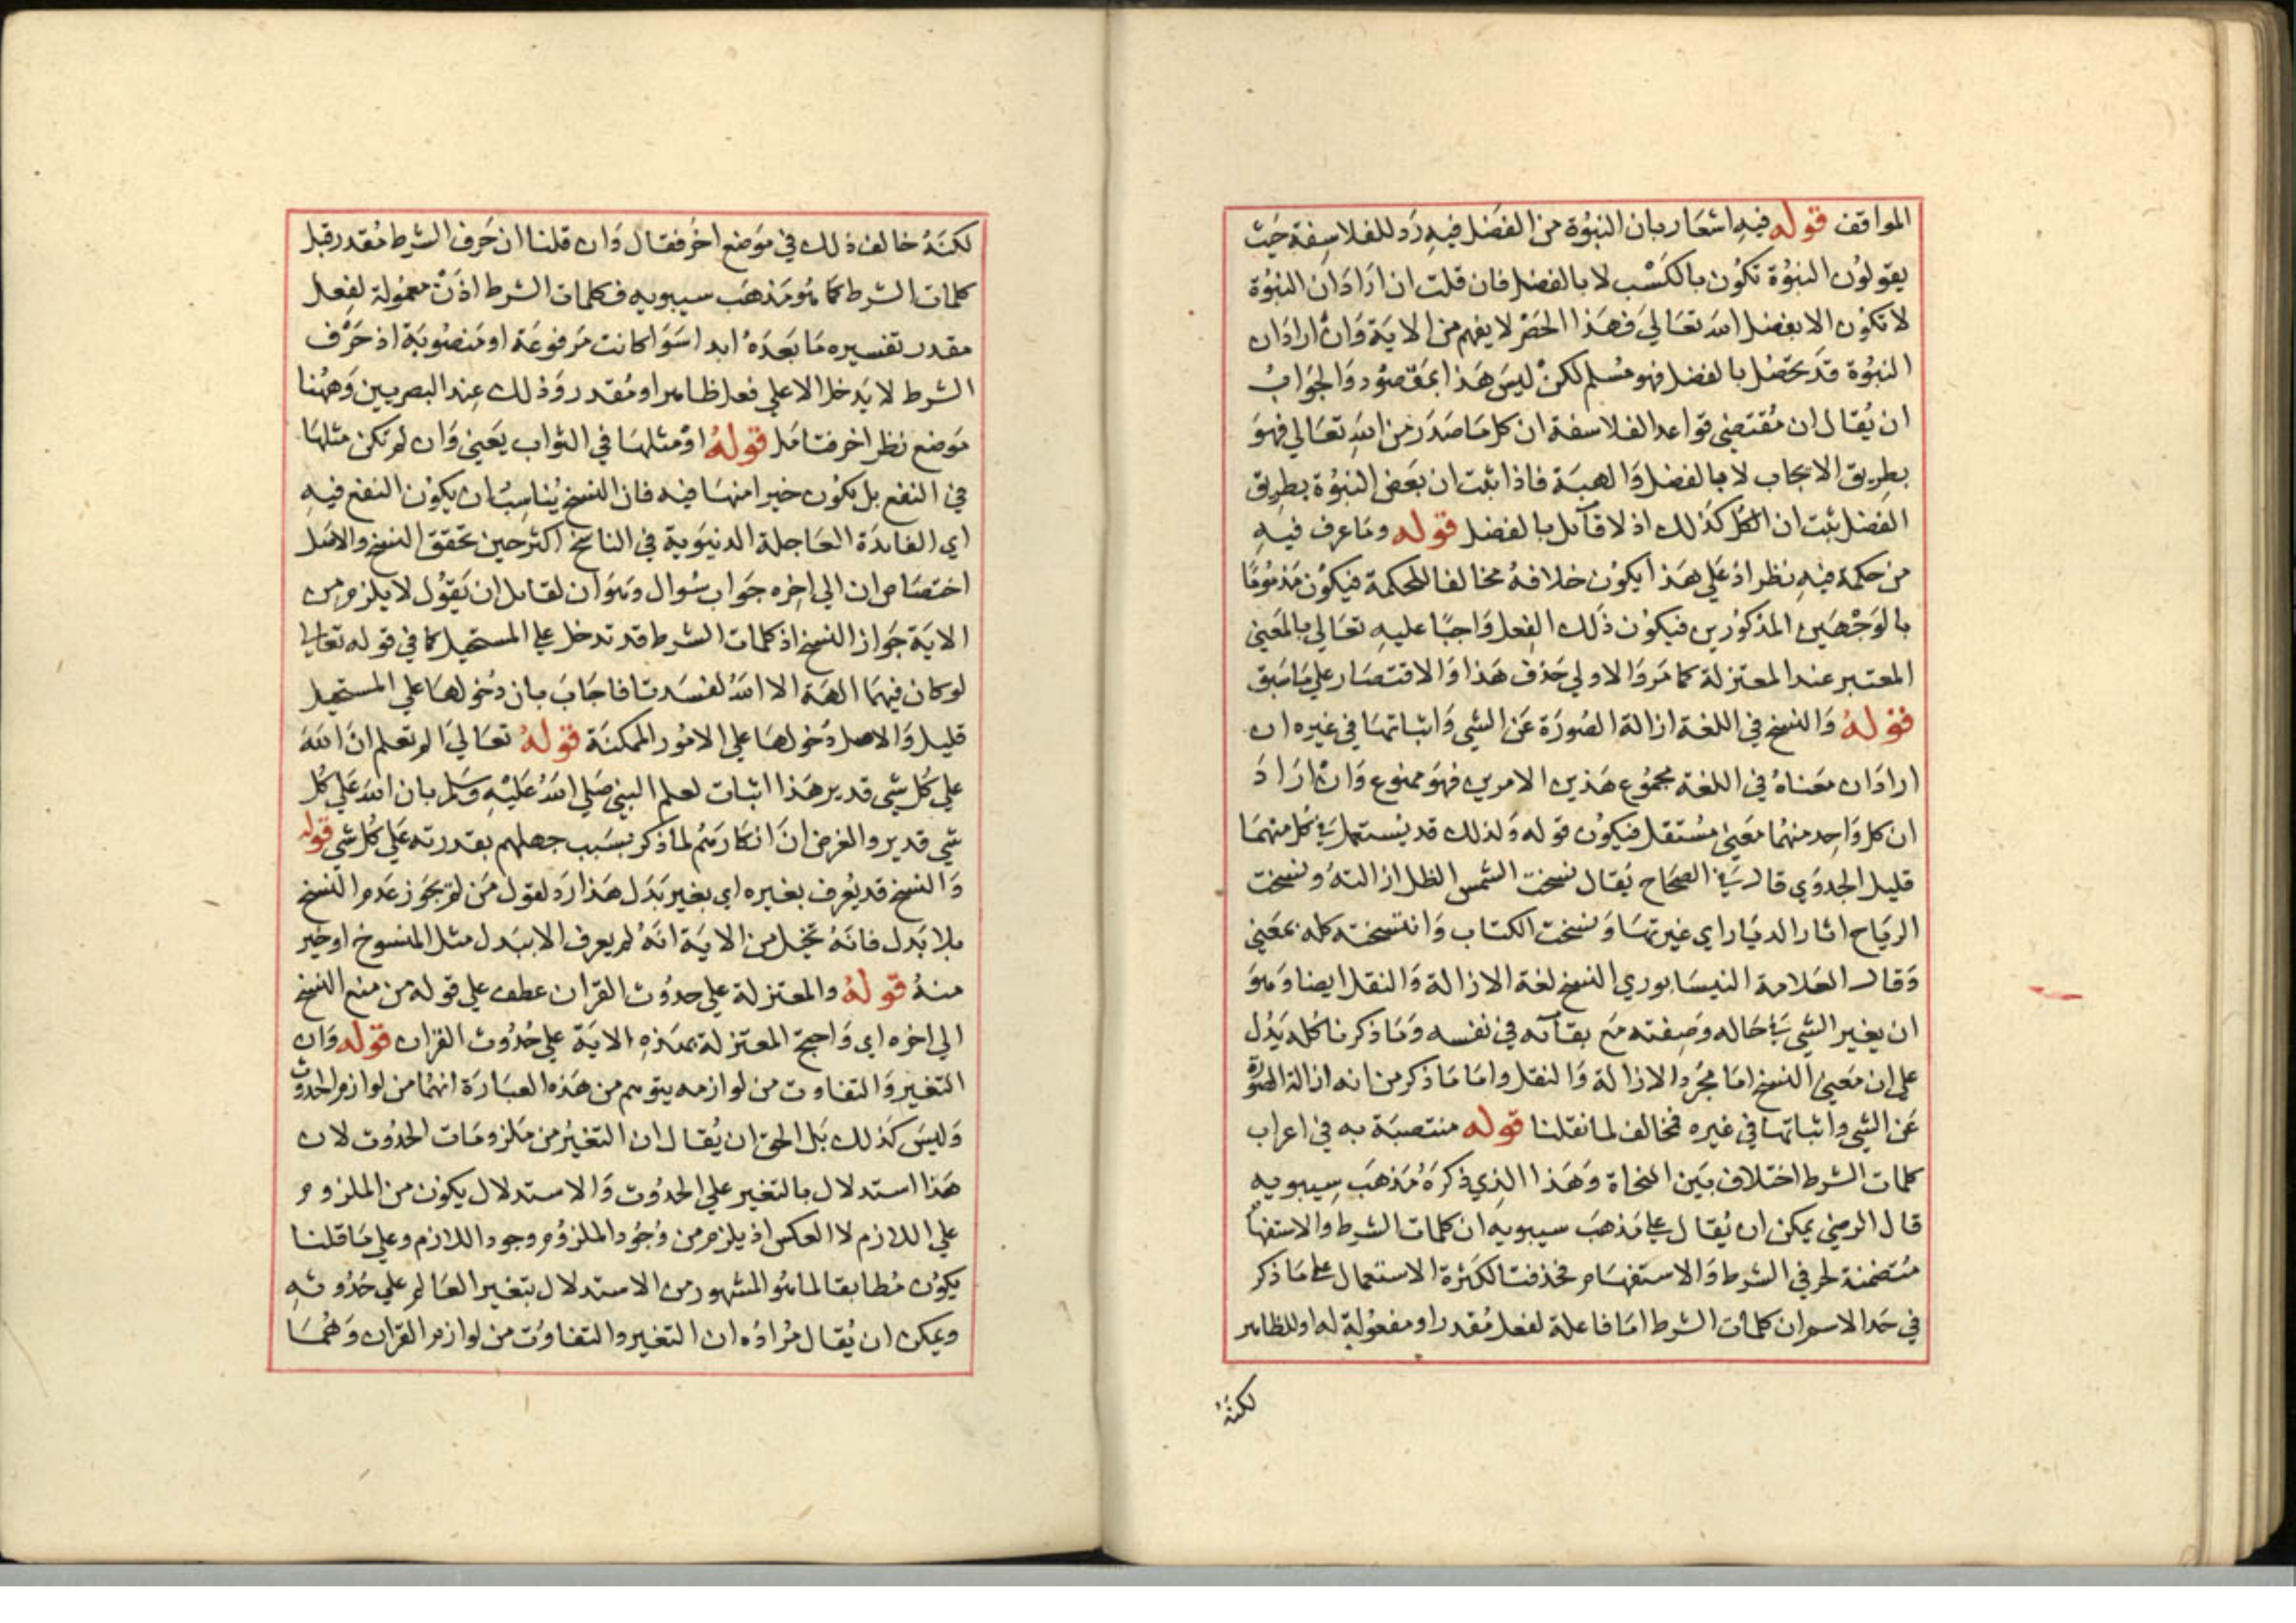 المواقف قوله فيه اشعار بان النبوة من الفضل فيه رد للفلاسفة حيث
يقولون النبوة تكون بالكسب لا بالفضل فان قلت ان اراد ان النبوة
لا تكون الا بفضل الله تعالى فهذا الحصر لا يفهم من الاية وان اراد ان
النبوة قد تحصل بالفضل فهو مسلم لكن ليس هذا بمقصود والجواب
ان يقال ان مقتضى قواعد الفلاسفة ان كل ما صدر من الله تعالى فهو
بطريق الايجاب لا بالفضل والهبة فاذا ثبت ان بعض النبوة بطريق
الفضل ثبت ان الكل كذلك اذ لا قآئل بالفضل قوله وما عرف فيه
من حكمة فيه نظر اذ على هذا يكون خلافه مخالفا للحكمة فيكون مذموما
بالوجهين المذكورين فيكون ذلك الفعل واجبا عليه تعالى بالمعنى
المعتبر عند المعتزلة كما مر والاولى حذف هذا والاقتصار على ما سبق
قوله والنسخ في اللغة ازالة الصورة عن الشي واثباتها في غيره ان
اراد ان معناه في اللغة مجموع هذين الامرين فهو ممنوع وان اراد
ان كل واحد منهما معنى مستقل فيكون قوله ولذلك قد يستعمل في كل منهما
قليل الجدوي قال في الصحاح يقال نسخت الشمس الظل ازالته ونسخت
الرياح اثار الديار اي غيرتها ونسخت الكتاب وانتسخته كله بمعنى
وقال العلامة النيسابوري النسخ لغة الازالة والنقل ايضا وهو
ان يغير الشي في حاله وصفته مع بقآئه في نفسه وما ذكرنا كله يدل
على ان معنى النسخ اما مجرد الازالة والنقل واما ما ذكر من انه ازالة الصورة
عن الشي واثباتها في غيره فمخالف لما نقلنا قوله منتصبة به في اعراب
كلمات الشرط اختلاف بين النحاة وهذا الذي ذكره مذهب سيبويه
قال الرضي يمكن ان يقال على مذهب سيبويه ان كلمات الشرط والاستفهام
متضمنة لحرفي الشرط والاستفهام فحذفتا لكثرة الاستعمال على ما ذكر
في حد الاسم وان كلمات الشرط اما فاعلة لفعل مقدر او مفعولة له او للظاهر
لكنه
لكنه خالف ذلك في موضع اخر فقال وان قلنا ان حرف الشرط مقدر قبل
كلمات الشرط كما هو مذهب سيبويه فكلمات الشرط اذن معمولة لفعل
مقدر تفسيره ما بعده ابدا سوا كانت مرفوعة او منصوبة اذ حرف
الشرط لا يدخل الا على فعل ظاهر او مقدر وذلك عند البصريين وههنا
موضع نظر اخر فتامل قوله او مثلها في الثواب يعني وان لم تكن مثلها
في النفع بل يكون خيرا منها فيه فان النسخ يناسب ان يكون النفع فيه
اي الفائدة العاجلة الدنيوية في الناسخ اكثر حين تحقق النسخ والاصل
اختصاص ان الى اخره جواب سوال وهو ان لقائل ان يقول لا يلزم من
الاية جواز النسخ اذ كلمات الشرط قد تدخل على المستحيل كما في قوله تعالى
لو كان فيهما الهة الا الله لفسدتا فاجاب بان دخولها على المستحيل
قليل والاصل دخولها على الامور الممكنة قوله تعالى الم تعلم ان الله
على كل شي قدير هذا اثبات لعلم النبي صلى الله عليه وسلم بان الله على كل
شي قدير والغرض ان انكارهم لما ذكر بسبب جهلهم بقدرته على كل شي قوله
والنسخ قد يعرف بغيره اي بغير بدل هذا رد لقول من لم يجوز عدم النسخ
بلا بدل فانه تخيل من الاية انه لم يعرف الا ببدل مثل المنسوخ او خير
منه قوله والمعتزلة على حدوث القران عطف على قوله من منع النسخ
الى اخره اي واحتج المعتزلة بهذه الاية على حدوث القران قوله وان
التغير والتفاوت من لوازمه يتوهم من هذه العبارة انهما من لوازم الحدوث
وليس كذلك بل الحق ان يقال ان التغير من ملزومات الحدوث لان
هذا استدلال بالتغير على الحدوث والاستدلال يكون من الملزوم
على اللازم لا العكس اذ يلزم من وجود الملزوم وجود اللازم وعلى ما قلنا
يكون مطابقا لما هو المشهور من الاستدلال بتغير العالم على حدوثه
ويمكن ان يقال مراده ان التغير والتفاوت من لوازم القران وهما